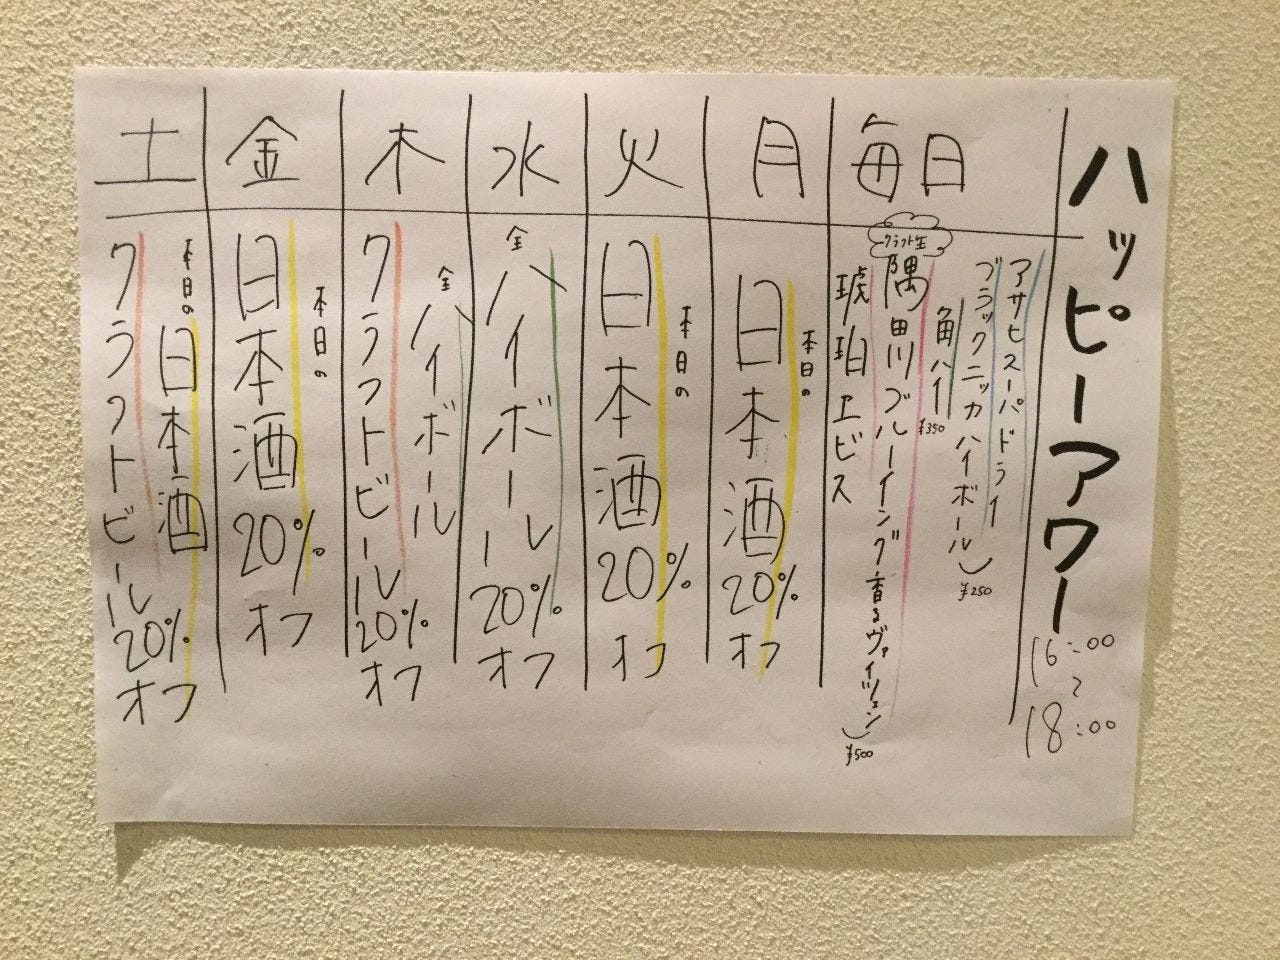 ハッピーアワー
16:00
〜
18:00
毎日
アサヒスーパードライ
ブラックニッカハイボール
¥250
角ハイ
¥350
クラフト生
隅田川ブルーイング香るヴァイツェン
琥珀ヱビス
¥500
月
本日の
日本酒20%オフ
火
本日の
日本酒20%オフ
水
全
ハイボール20%オフ
木
全
ハイボール
クラフトビール20%オフ
金
本日の
日本酒20%オフ
土
本日の
日本酒
クラフトビール20%オフ